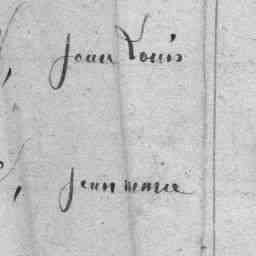 jean Louis
jean marie